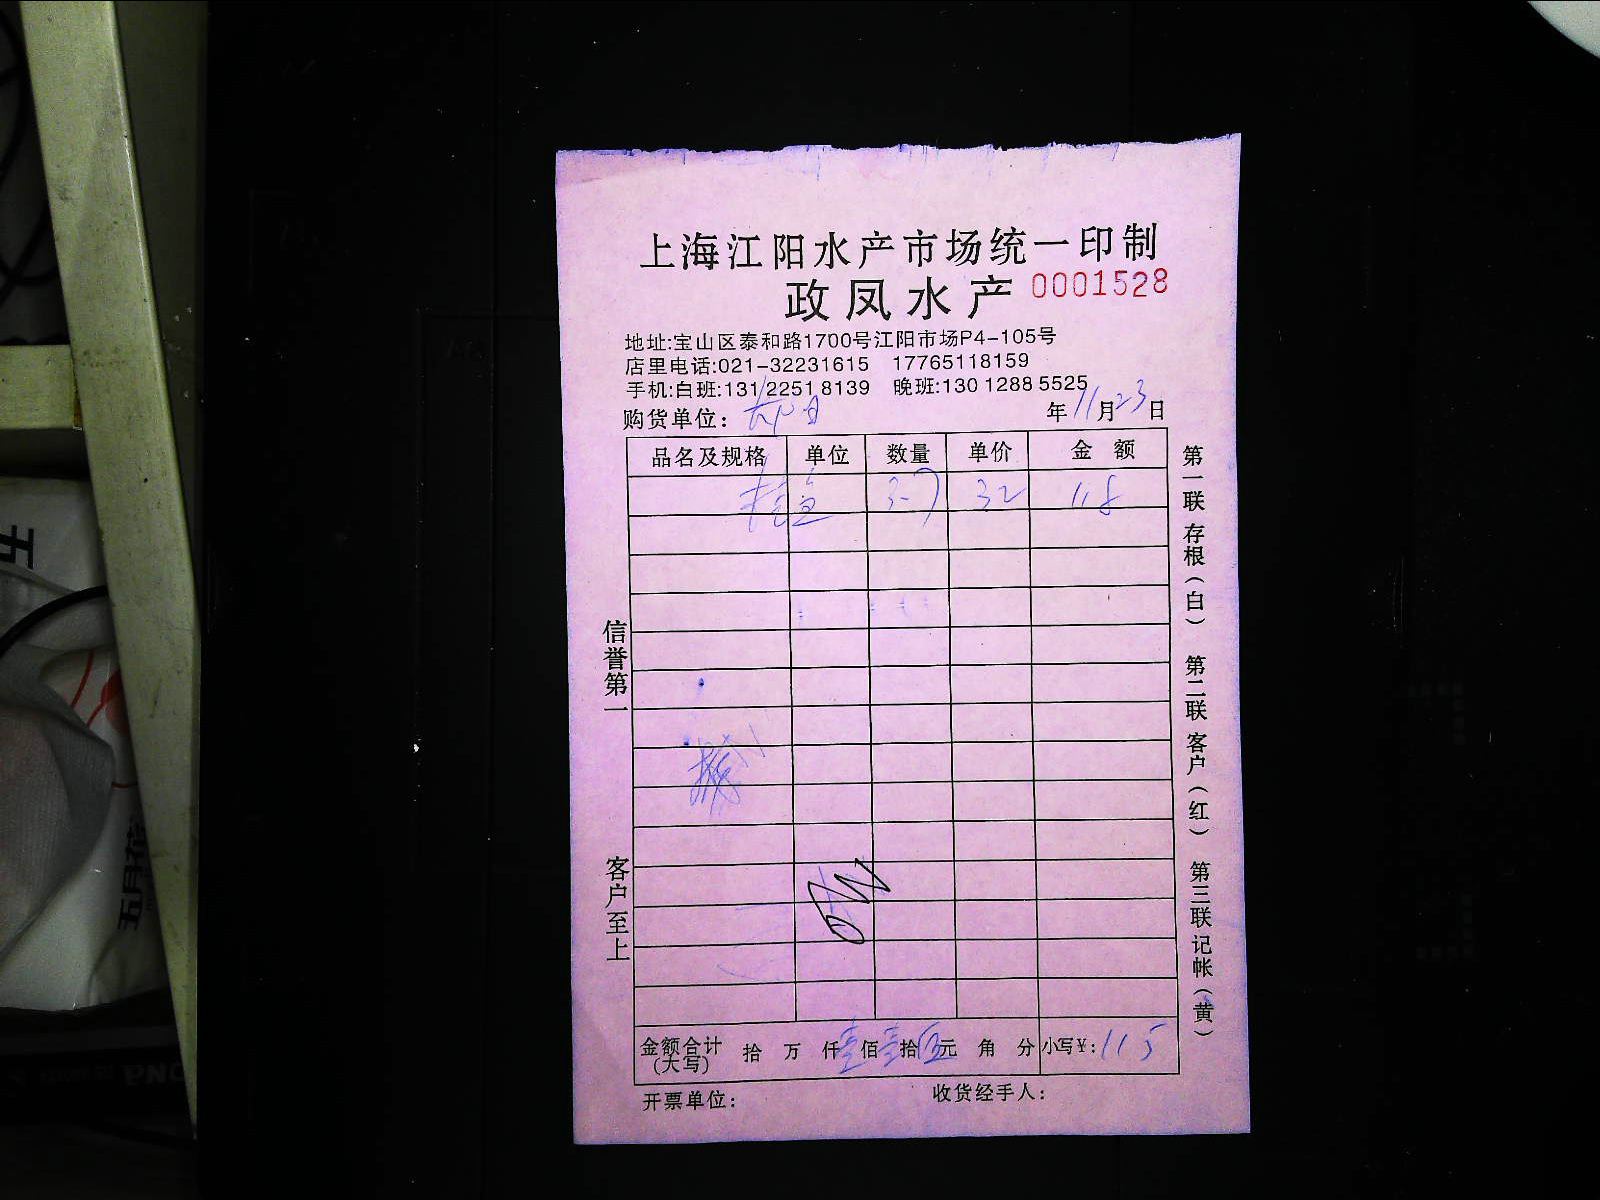 上海江阳水产市场统一印制
政凤水产 0001528
地址:宝山区泰和路1700号江阳市场P4-105号
店里电话:021-32231615 17765118159
手机:白班:131 2251 8139 晚班:130 1288 5525
购货单位: 年11月23日
品名及规格 单位 数量 单价 金额
3.7 32 118
信誉第一
客户至上
第一联存根(白) 第二联客户(红) 第三联记帐(黄)
金额合计(大写) 拾 万 仟壹佰壹拾伍元 角 分 小写¥:115
开票单位: 收货经手人:
五
五月花